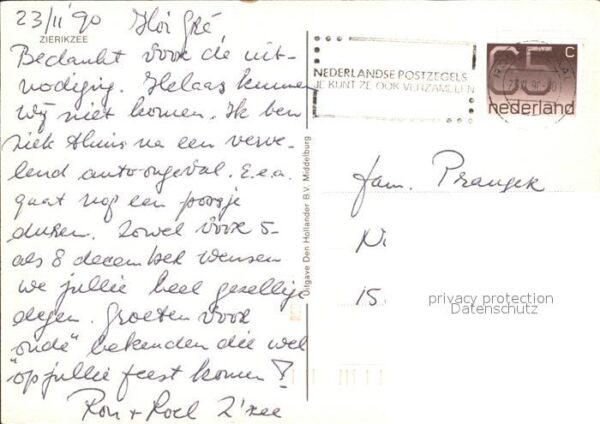 23/11 '90 Hoi Gré
ZIERIKZEE
Bedankt voor de uit-
nodiging. Helaas kunnen
wij niet komen. Ik ben
ziek thuis na een verve-
lend auto-ongeval. E.e.a.
gaat nog een poosje
duren. Zowel voor 5-
als 8 december wensen
we jullie heel gezellige
dagen. Groeten voor
"oude" bekenden die wel
"op jullie feest komen!
Ron + Roel Z'zee
Uitgave Den Hollander B.V. Middelburg
NEDERLANDSE POSTZEGELS
JE KUNT ZE OOK VERZAMELEN
65 c
nederland
fam. Prangek
Ni
15
privacy protection
Datenschutz